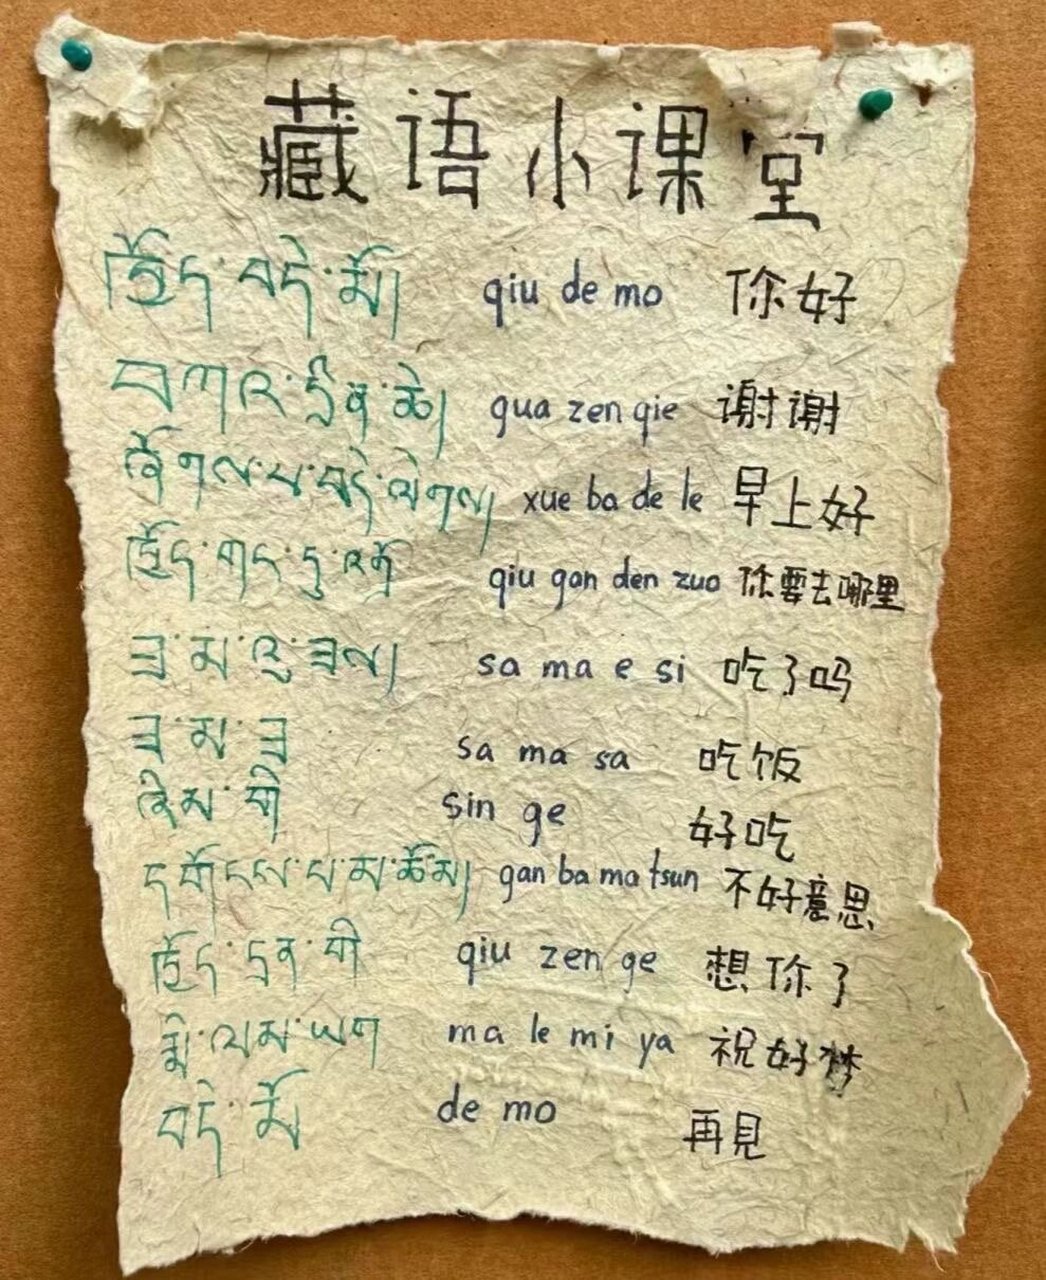 藏语小课堂
ཁྱོད་བདེ་མོ། qiu de mo 你好
བཀའ་དྲིན་ཆེ། gua zen qie 谢谢
ཞོགས་པ་བདེ་ལེགས། xue ba de le 早上好
ཁྱོད་གང་དུ་འགྲོ qiu gan den zuo 你要去哪里
ཟ་མ་འུ་ཟས། sa ma e si 吃了吗
ཟ་མ་ཟ sa ma sa 吃饭
ཞིམ་གི sin ge 好吃
དགོངས་པ་མ་ཚོམ། gan ba ma tsun 不好意思
ཁྱོད་དྲན་གི qiu zen ge 想你了
རྨི་ལམ་ཡག ma le mi ya 祝好梦
བདེ་མོ de mo 再見